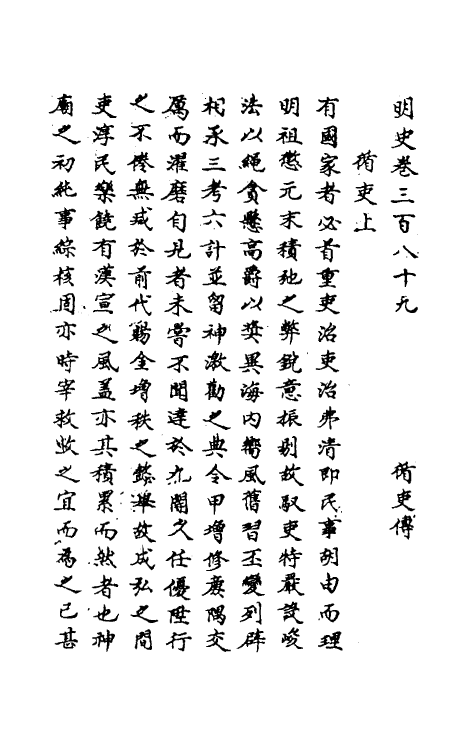 明史卷三百八十九 循吏傳
循吏上
有國家者必首重吏治吏治弗清即民事胡由而理
明祖懲元末積弛之弊銳意振刷故馭吏特嚴設峻
法以繩貪懸高爵以奬異海内嚮風舊習丕變列辟
相承三考六計並留神激勸之典令甲增修廉隅交
厲而濯磨自見者未嘗不聞達於九閽久任優陞行
之不倦無減於前代賜金增秩之懿舉故成弘之間
吏淳民樂饒有漢宣之風蓋亦其積累而然者也神
廟之初純事綜核周亦時宰救敝之宜而為之已甚